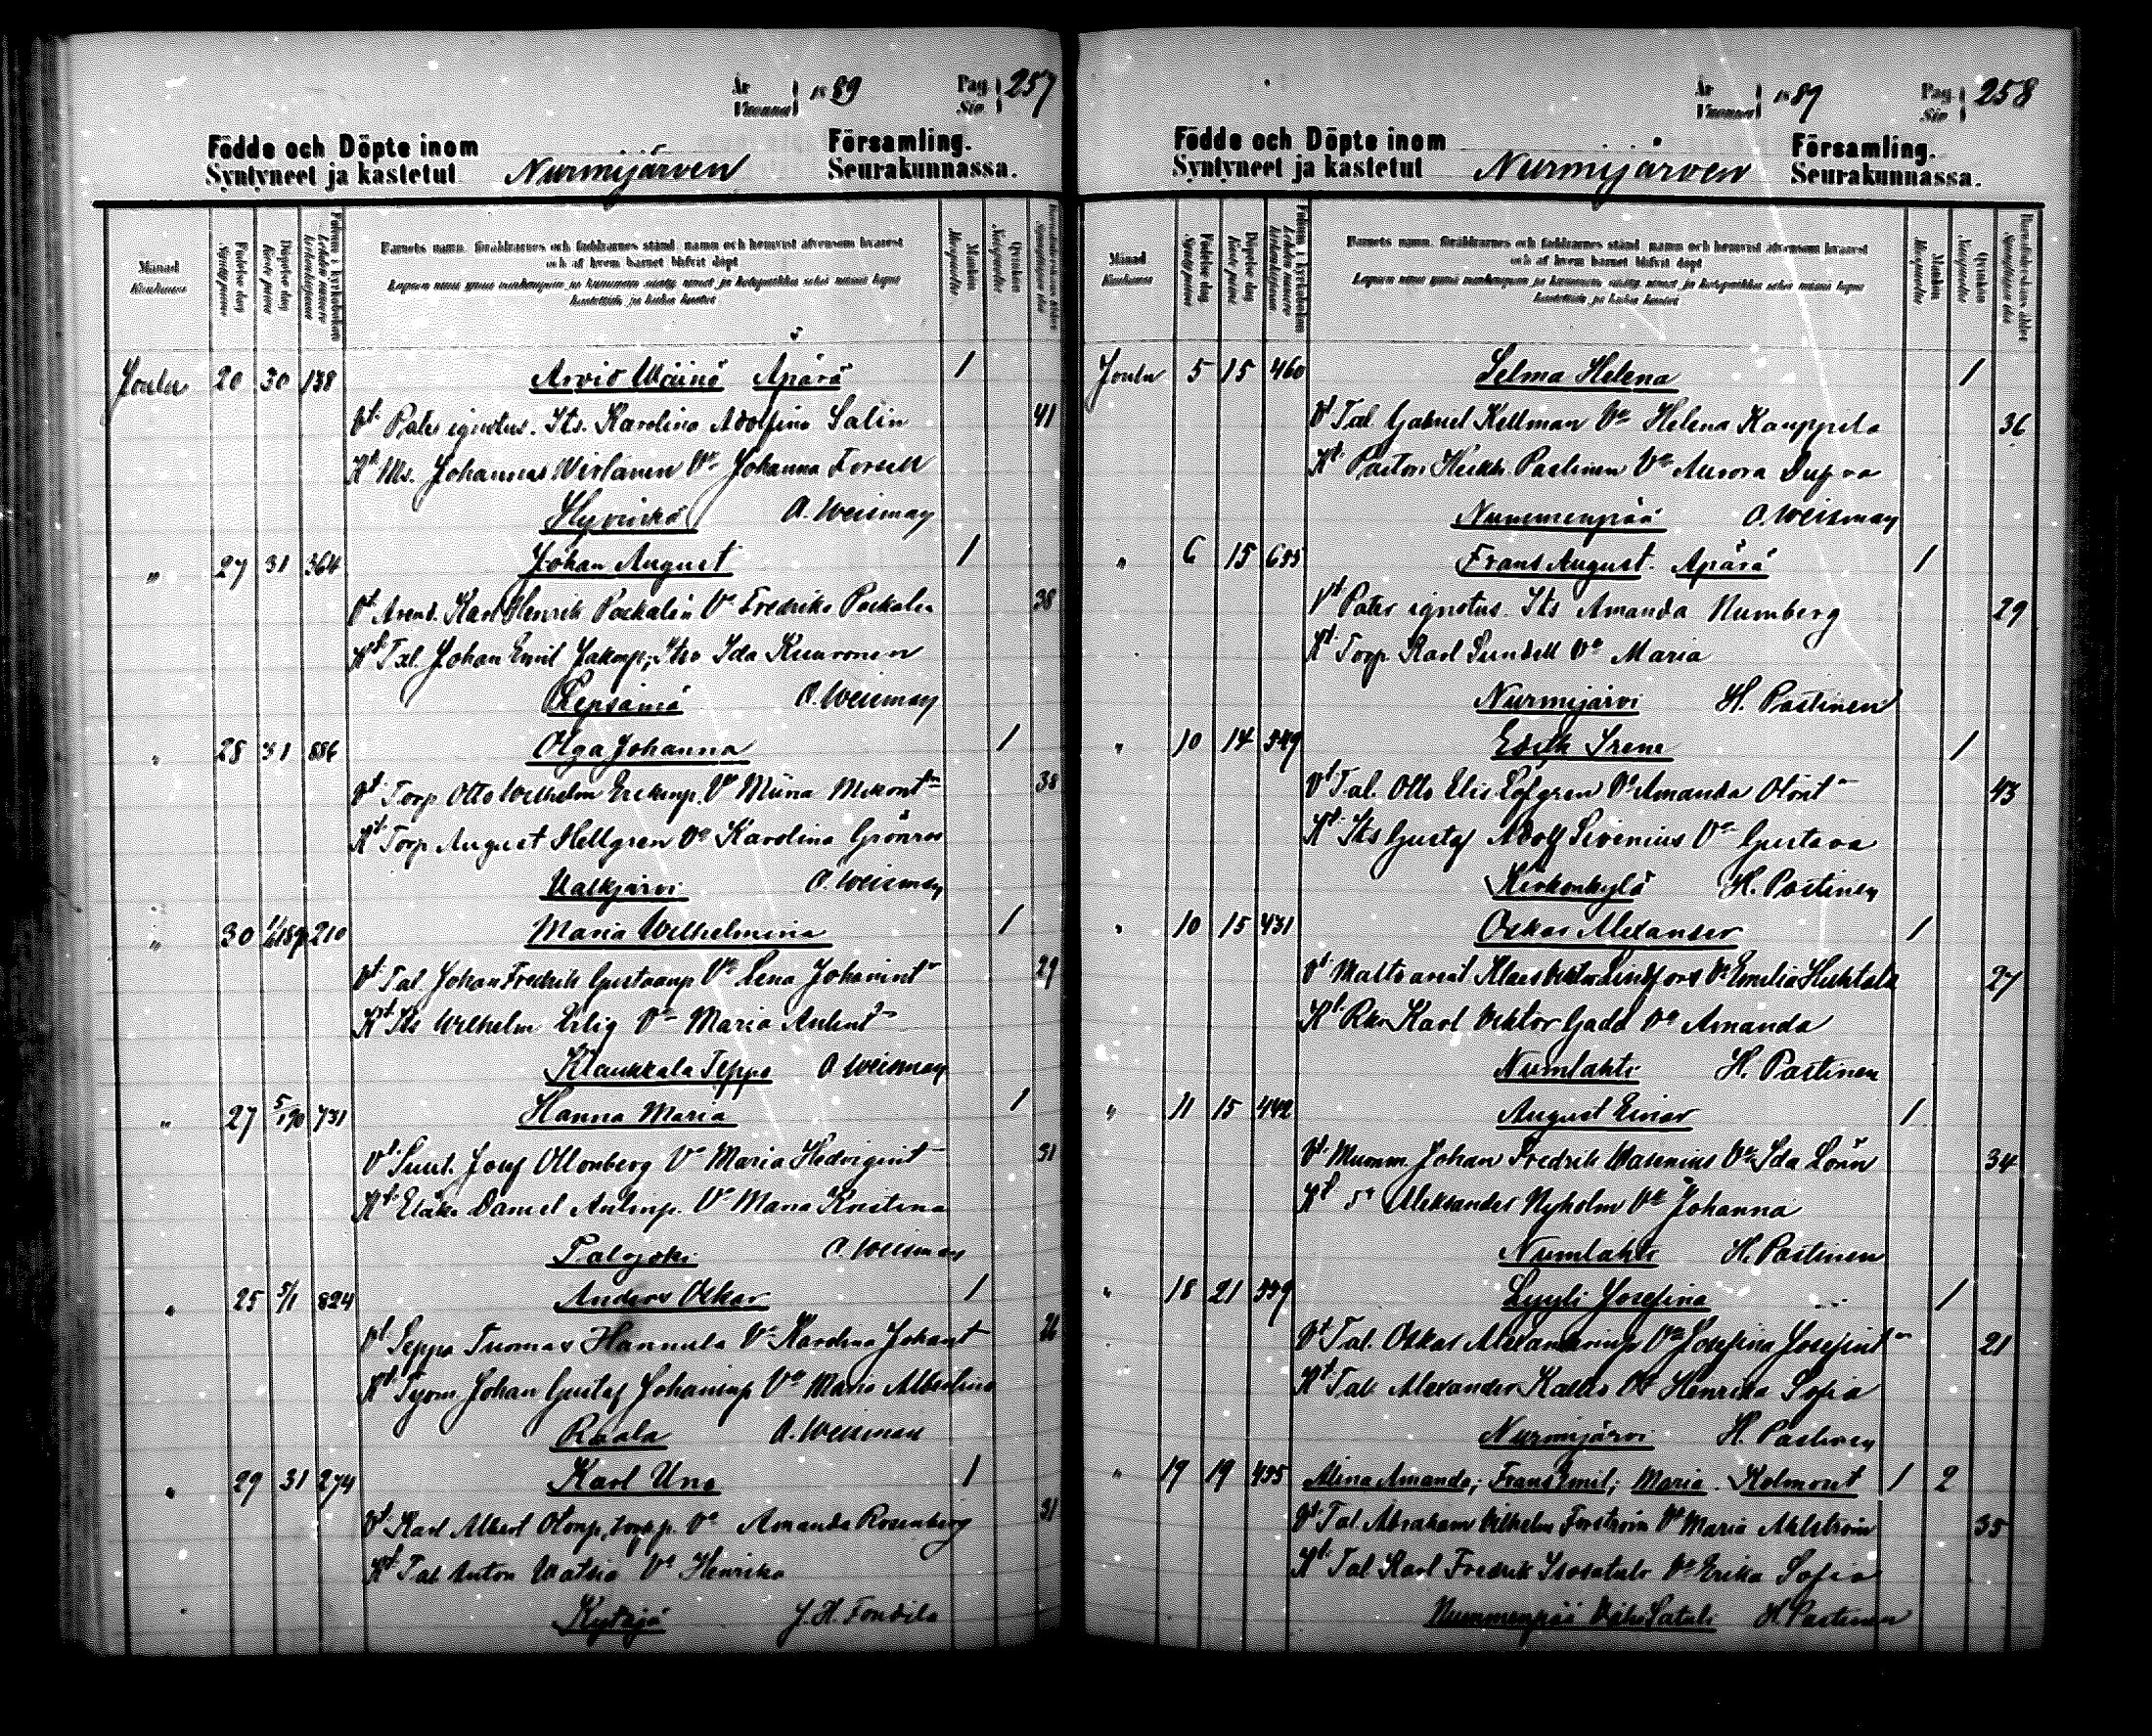 År Vuonna } 1889 Pag. Siv. } 257
Födde och Döpte inom Församling.
Syntyneet ja kastetut Nurmijärven Seurakunnassa.
Månad Kuukausi
Födelse dag Syntymäpäivä
Döpelse dag Kaste päivä
Barnets namn, föräldrarnes och faddrarnes stånd, namn och hemvist äfvensom hvarest
och af hvem barnet blifvit döpt
Mankön Miespuolia
Qvinkön Naispuolia
Joulu 20 30 138 Arvid Wäinö Äpärä 1
Vt. Pater ignotus. Its. Karolina Adolfina Salin 41
Kt. Ms. Johannes Wirtanen Vo Johanna Forsell
Hyvinkä O. Weisman
" 27 31 364 Johan August 1
Vt Arend. Karl Henrik Packalén Vo Fredrika Packalen 38
Kt Tal. Johan Emil Jakinp; Itso Ida Kuuronen
Repsämä O. Weisman
" 28 31 886 Olga Johanna 1
Vt Torp Otto Wilhelm Erikinp. Vo Miina Mikont 38
Kt Torp August Hellgren Vo Karolina Grönroos
Valkjärvi O. Weisman
" 30 210 Maria Wilhelmina 1
Vt. Tal. Johan Fredrik Gustaanp Vo Lena Johanint 29
Kt Its Wilhelm Erlig Vo Maria Antint
Klaukkala Seppä O. Weisman
" 27 5/1 90 731 Hanna Maria 1
Vt Suut. Josef Ollonberg Vo Maria Hedvigint 31
Kt Eläk. Daniel Antinp. Vo Maria Kristina
Palojoki O. Weisman
" 25 5/1 824 Anders Oskar 1
Vt. Seppä Tuomas Hannula Vo Karolina Johant 26
Kt. Työm. Johan Gustaf Johaninp Vo Maria Albertina
Raala O. Weisman
" 29 31 274 Karl Uno 1
Vt. Karl Albert Otonp, torpp. Vo Amanda Rosenberg 31
Kt Tal Anton Watsia Vo Henrika
Kytäjä J. H. Fondila
År Vuonna } 1889 Pag. Siv. } 258
Födde och Döpte inom Församling.
Syntyneet ja kastetut Nurmijärven Seurakunnassa.
Månad Kuukausi
Födelse dag Syntymäpäivä
Döpelse dag Kaste päivä
Barnets namn, föräldrarnes och faddrarnes stånd, namn och hemvist äfvensom hvarest
och af hvem barnet blifvit döpt
Mankön Miespuolia
Qvinkön Naispuolia
Joulu 5 15 460 Selma Helena 1
Vt Tal. Gabriel Kellman Vo Helena Kauppila 36
Kt. Pastori Heikki Pastinen Vo Aurora
Nummenpää O. Weisman
" 6 15 635 Frans August. Äpärä 1
Vt. Pater ignotus. Its Amanda Numberg 29
Kt. Torp. Karl Sundell Vo Maria
Nurmijärvi H. Pastinen
" 10 14 549 Edith Irene 1
Vt Tal. Otto Elis Löfgren Vo Amanda Otont 43
Kt. Its Gustaf Adolf Sirenius Vo Gustava
Kirkonkylä H. Pastinen
" 10 15 431 Oskar Alexander 1
Vt. Lindfors Vo Emelia Huhtala 27
Kt. Karl Viktor Gadd Vo Amanda
Numlahti H. Pastinen
" 11 15 442 August Einar 1
Vt. Muurm. Johan Fredrik Wasenius Vo Ida Lönn 34
Kt Aleksander Nyholm Vo Johanna
Numlahti H. Pastinen
" 18 21 559 Lyyli Josefina 1
Vt Tal. Oskar Alexanterinp Vo Josefina Josefint 21
Kt Tal. Alexander Kallio Vo Henrika Sofia
Nurmijärvi H. Pastinen
" 19 19 455 Alina Amanda; Frans Emil; Maria. Kolmoset 1 2
Vt. Tal. Abraham Vilhelm Forström Vo Maria Ahlström 35
Kt. Tal Karl Fredrik Isosatuli Vo Erika Sofia
Nummenpää Vähä Satuli H. Pastinen